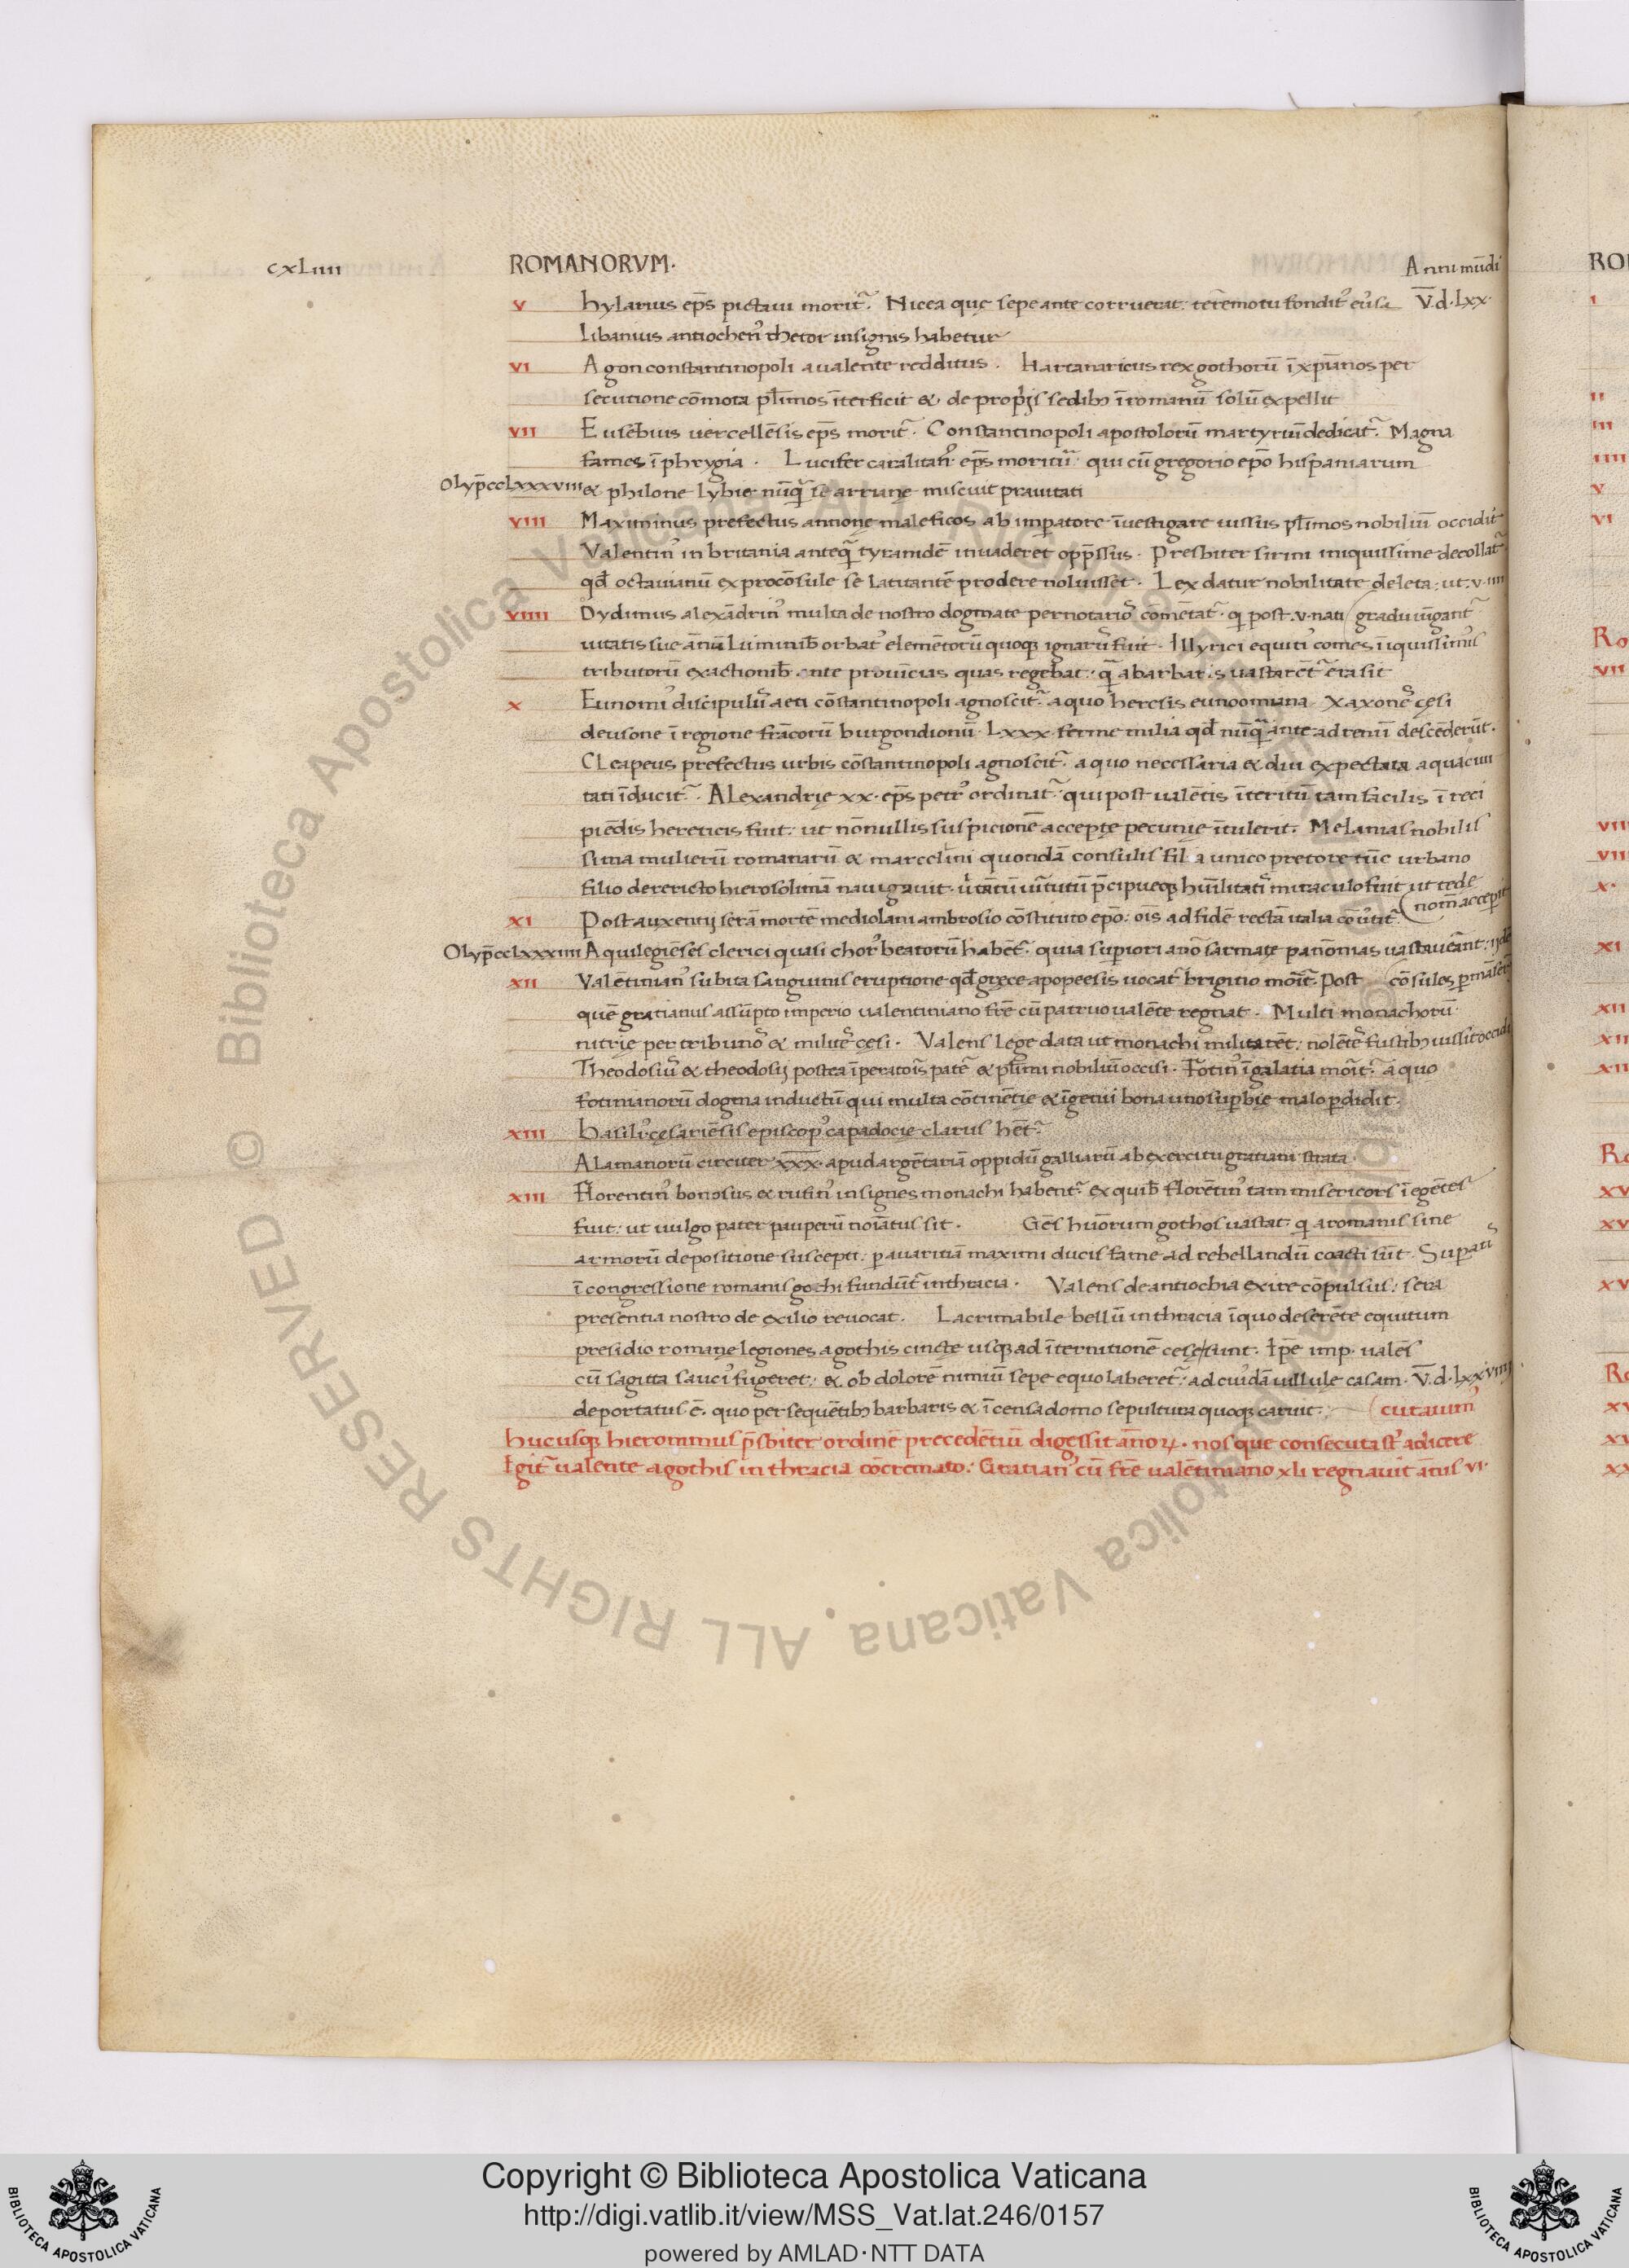 cxLiiii ROMANORVM. Anni mūdi
v hylarius ep̄s pictaui morit᷑. Nicea quę sepe ante corruerat: terēmotu fondit᷒ eūsa V̄.d.Lxx.
Libanius antiochen᷒ rhetor insignis habetur
vi Agon constantinopoli a ualente redditus. Hartanaricus rex gothorū ī xp̄ianos per
secutione cōmota pl̄imos īterficit &. de prop̄ijs sedib; ī romanū solū expellit
vii Eusebius uercellēsis ep̄s morit᷑. Constantinopoli apostolorū martyriū dedicat᷑. Magna
fames ī phrygia. Lucifer caralitan᷒ ep̄s moritu᷑ qui cū gregorio ep̄o hispaniarum
Olyp̄ cclxxxviii & philone Lybie nūq̄ se arriane miscuit prauitati
viii Maximinus prefectus annonę maleficos ab imperatore īuestigare iussus pl̄imos nobiliū occidit
Valentin᷒ in britania anteq̄ tyramidē inuaderet opp̄ssus. Presbiter sirini iniquissime decollat᷑
qd̄ octauianū ex procōsule se Latitantē prodere noluisset. Lex datur nobilitate deleta: ut. v. iiii
viiii Dydimus alexādrin᷒ multa de nostro dogmate per notario᷒ cōmētat᷑. q post .v. nati (gradu iūgant᷑
uitatis sue ānū Luminib̄ orbat᷒ elemētorū quoq; ignar᷒ fuit. Illyrici equiti᷒ comes īiquissim᷒
tributorū exactionib̄ ante prouīcias quas regebat: q̄ a barbaris uastarēt᷑ erasit
x Eunomi᷒ discipulu᷒ aeti cōstantinopoli agnoscit᷑. a quo heresis eunoomiana. Xaxone᷒ cęsi
deusone ī regione frācorū burgondionū. Lxxx. ferme milia qd̄ nūq̄ ante ad renū descēderūt.
CLeapeus prefectus urbis cōstantinopoli agnoscit᷑. a quo necessaria & diu expectata aqua ciui
tati īducit᷑. ALexandrię xx. ep̄s petr᷒ ordinat᷑. qui post ualētis īteritū tam facilis ī reci
piēdis hereticis fuit: ut nōnullis suspicionē acceptę pecunie ītulerit. Melanias nobilis
sima mulierū romanarū & marcelini quondā consulis filia unico pretore tūc urbano
filio derericto hierosolimā nauigauit. ū tātū uirtutū p̄cipueq; hūilitati᷒ miraculo fuit ut tede
xi Post auxentij serā mortē mediolani ambrosio cōstituto ep̄o: oīs ad fidē rectā italia cōuūtit᷑. (nom̄ acceperit
Olyp̄ cclxxxviiii Aquilegiēses clerici quasi chor᷒ beatorū habēt᷑. quia superiori ano sarmate panōnias uastauerant: ijdē
xii Valētinian᷒ subita sanguinis eruptione qd̄ gręce apopeesis uocat᷑ brigitio morit᷑. Post (cōsules p̄māserūt
quē gratianus assūpto imperio ualentiniano fr̄e cū patruo ualēte regnat. Multi monachorū
nitrię per tribuno᷒ & milite᷒ cęsi. Valens Lege data ut monachi militarēt: nolēte᷒ fustib; iussit occidi
Theodosiu᷒ & theodosij postea īperatoris patē & pl̄imi nobiliū occisi. Fotin᷒ ī galatia morit᷑. a quo
fotinianorū dogma inductū qui multa cōtinētie & īgenii bona uno superbie malo perdidit.
xiii basili᷒ cęsariēsis episcop᷒ capadocie clarus hēt᷑.
ALamanorū circiter xxx. apud argētariā oppidū galliarū ab exercitu gratiani strata
xiii Florentin᷒ bonosus & rufin᷒ insignes monachi habent᷑. ex quib̄ florētin᷒ tam misericors ī egētes
fuit: ut uulgo pater pauperū noīatus sit. Gēs hūorum gothos uastat. q a romanis sine
armorū depositione suscepti: p auaritiā maximi ducis fame ad rebellandū coacti sūt. Superatis
ī congressione romanis gothi fundūt᷑ in thracia. Valens de antiochia exire cōpulsus: sera
presentia nostro de exilio reuocat. Lacrimabile bellū in thracia ī quo deserēte equitum
presidio romanę legiones a gothis cincte usq; ad īternitionē cese sunt. Ip̄e imp. ualēs
cū sagitta sauci᷒ fugeret: & ob dolorē nimiū sepe equo laberet᷑: ad cui᷒dā uillule casam. V̄.d.Lxxviiii
deportatus ē. quo persequētib; barbaris & īcensa domo sepultura quoq; caruit. (curauim᷒
hucusq; hieronimus p̄sbiter ordinē precedētiū digessit ānoꝝ. nos que consecuta st̄ adicere
Igit᷑ ualente a gothis in thracia cōcremato: Gratian᷒ cū fr̄e ualētiniano xli regnauit ānis vi.
Copyright © Biblioteca Apostolica Vaticana
http://digi.vatlib.it/view/MSS_Vat.lat.246/0157
powered by AMLAD·NTT DATA